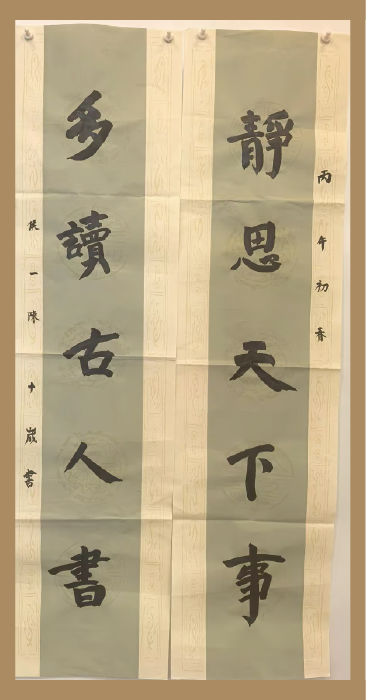 丙午初春
靜思天下事
多讀古人書
一陳十歲書